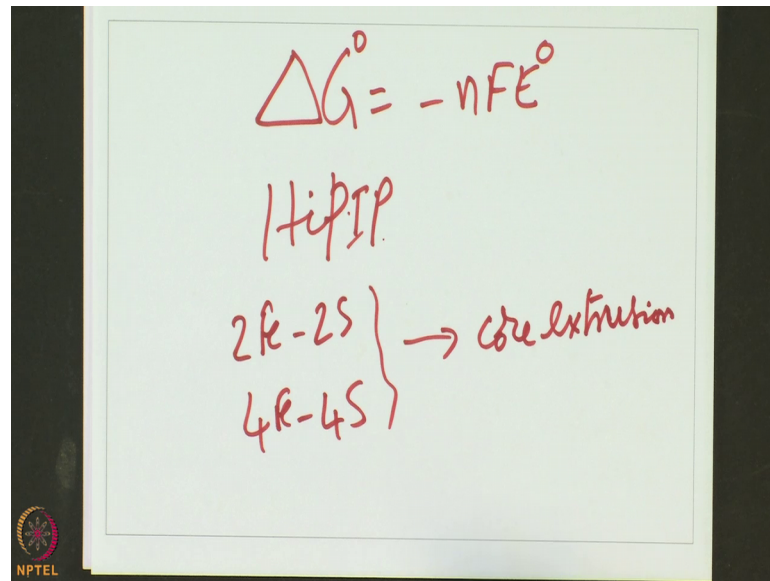 ΔG⁰ = -nFE⁰
HiPIP
2Fe-2S
4Fe-4S } → core extrusion
NPTEL